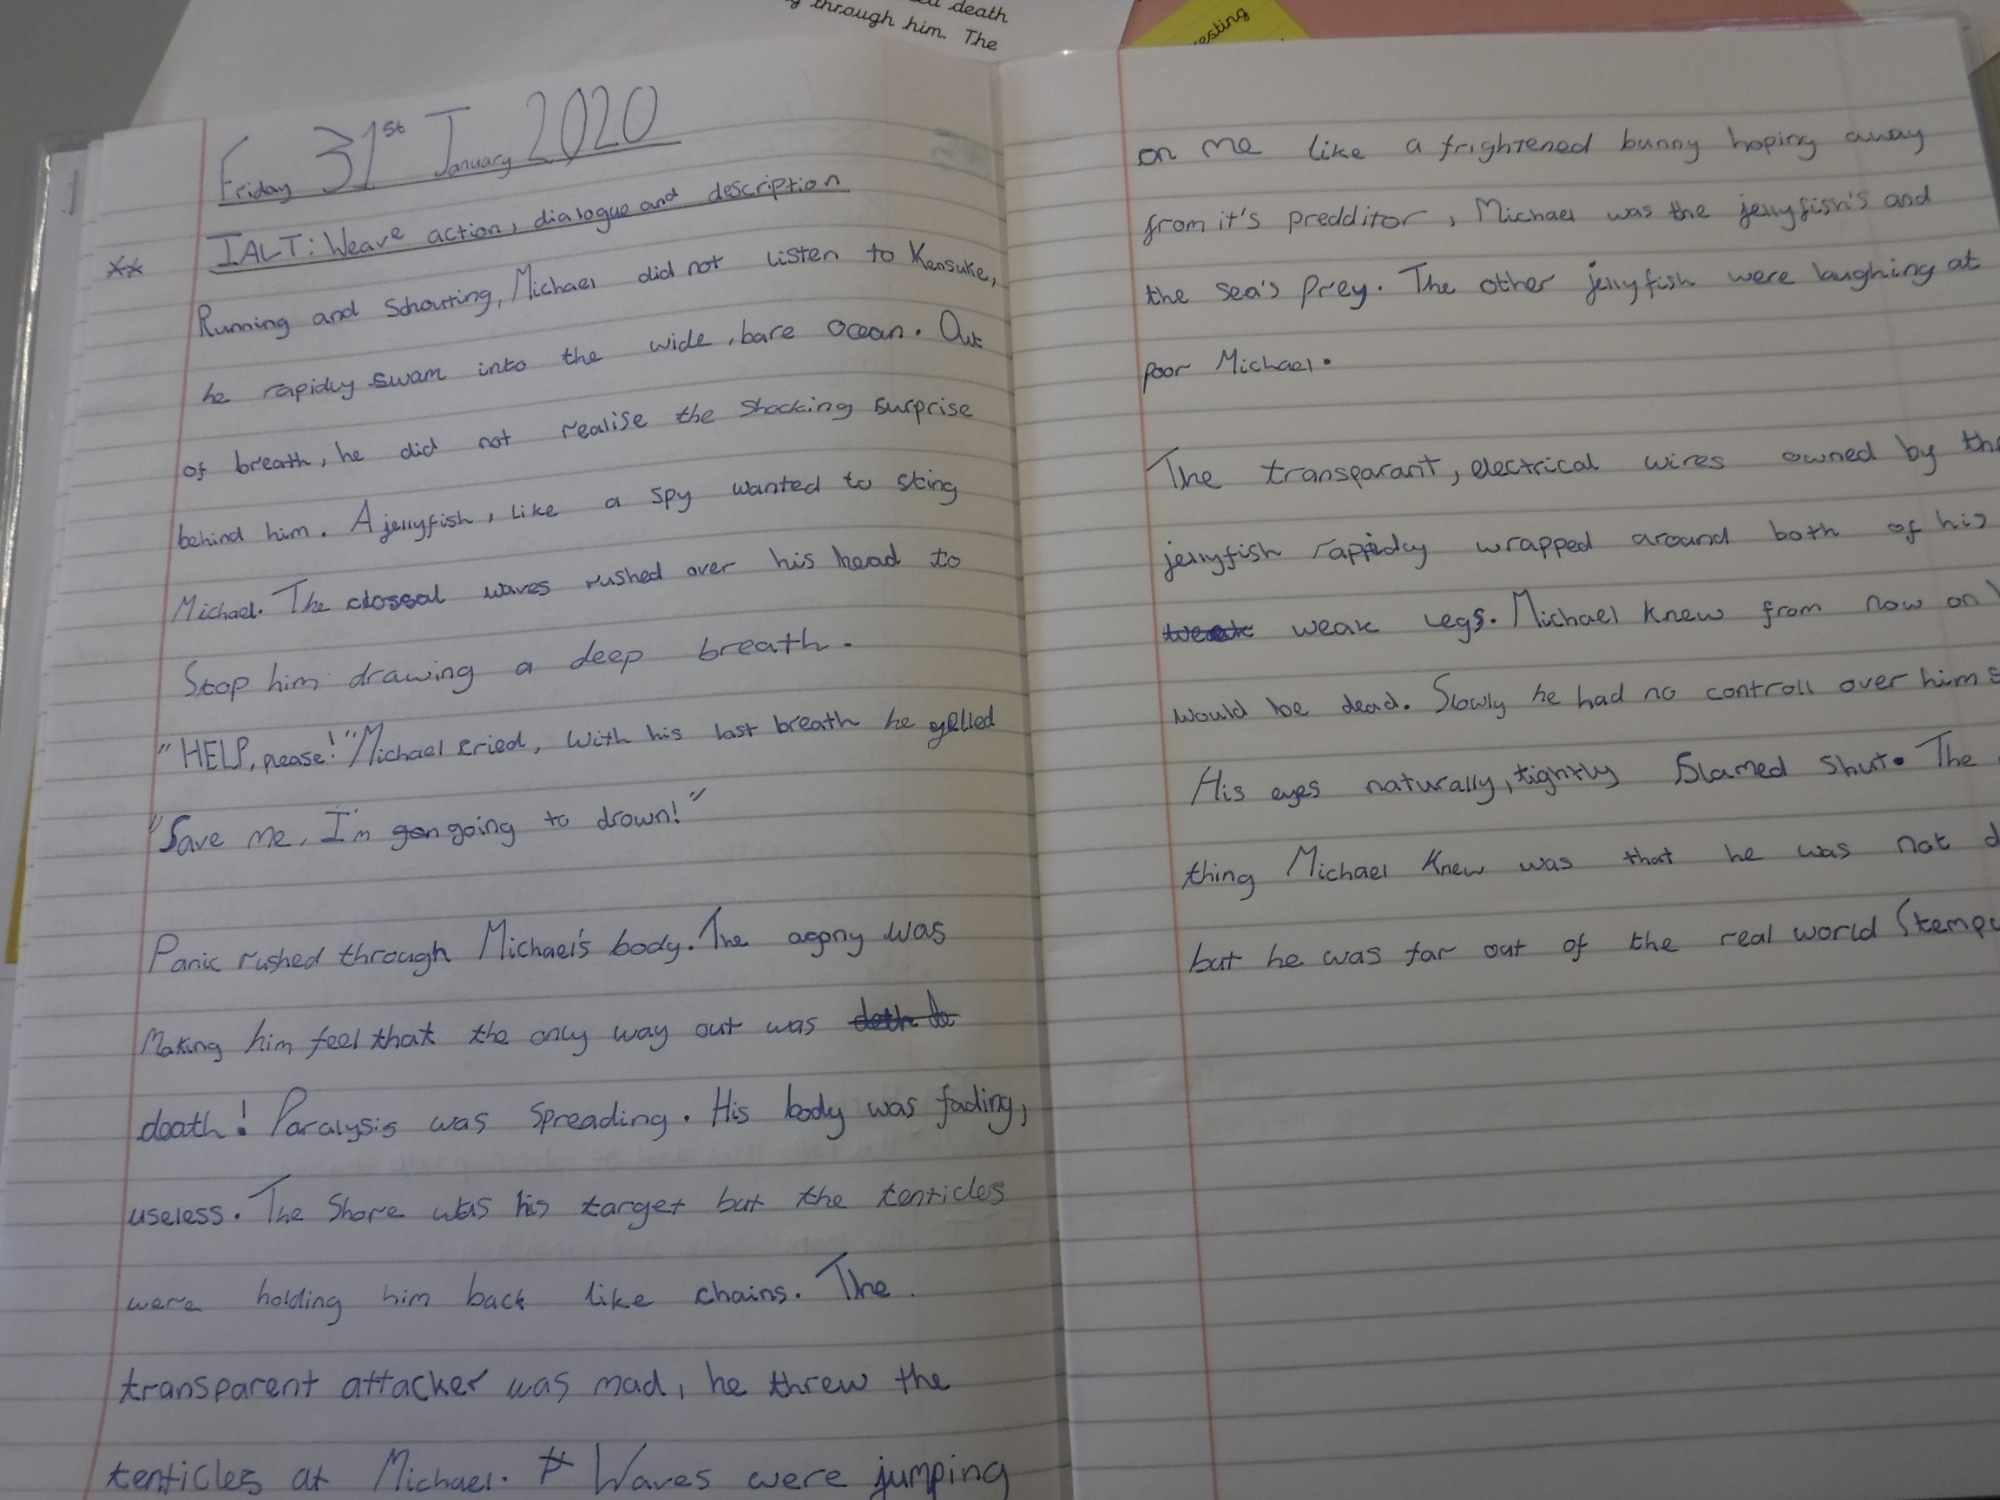 death
through him. The
esting
Friday 31st January 2020
IALT: Weave action, dialogue and description
**
Running and Shouting, Michael did not listen to Kensuke,
he rapidly swam into the wide, bare ocean. Out
of breath, he did not realise the shocking surprise
behind him. A jellyfish, like a spy wanted to sting
Michael. The clossal waves rushed over his head to
Stop him drawing a deep breath.
"HELP, please!" Michael cried, With his last breath he yelled
"Save me, I'm gon going to drown!"
Panic rushed through Michael's body. The agony was
Making him feel that the only way out was
death! Paralysis was Spreading. His body was fading,
useless. The Shore was his target but the tenticles
were holding him back like chains. The
transparent attacker was mad, he threw the
tenticles at Michael. Waves were jumping
on me like a frightened bunny hoping away
from it's predditor, Michael was the jellyfish's and
the sea's prey. The other jellyfish were laughing at
poor Michael.
The transparant, electrical wires owned by the
jellyfish rappidly wrapped around both of his
weak weak legs. Michael knew from now on
would be dead. Slowly he had no controll over him
His eyes naturally, tightly slamed shut. The
thing Michael knew was that he was not d
but he was far out of the real world (tempo